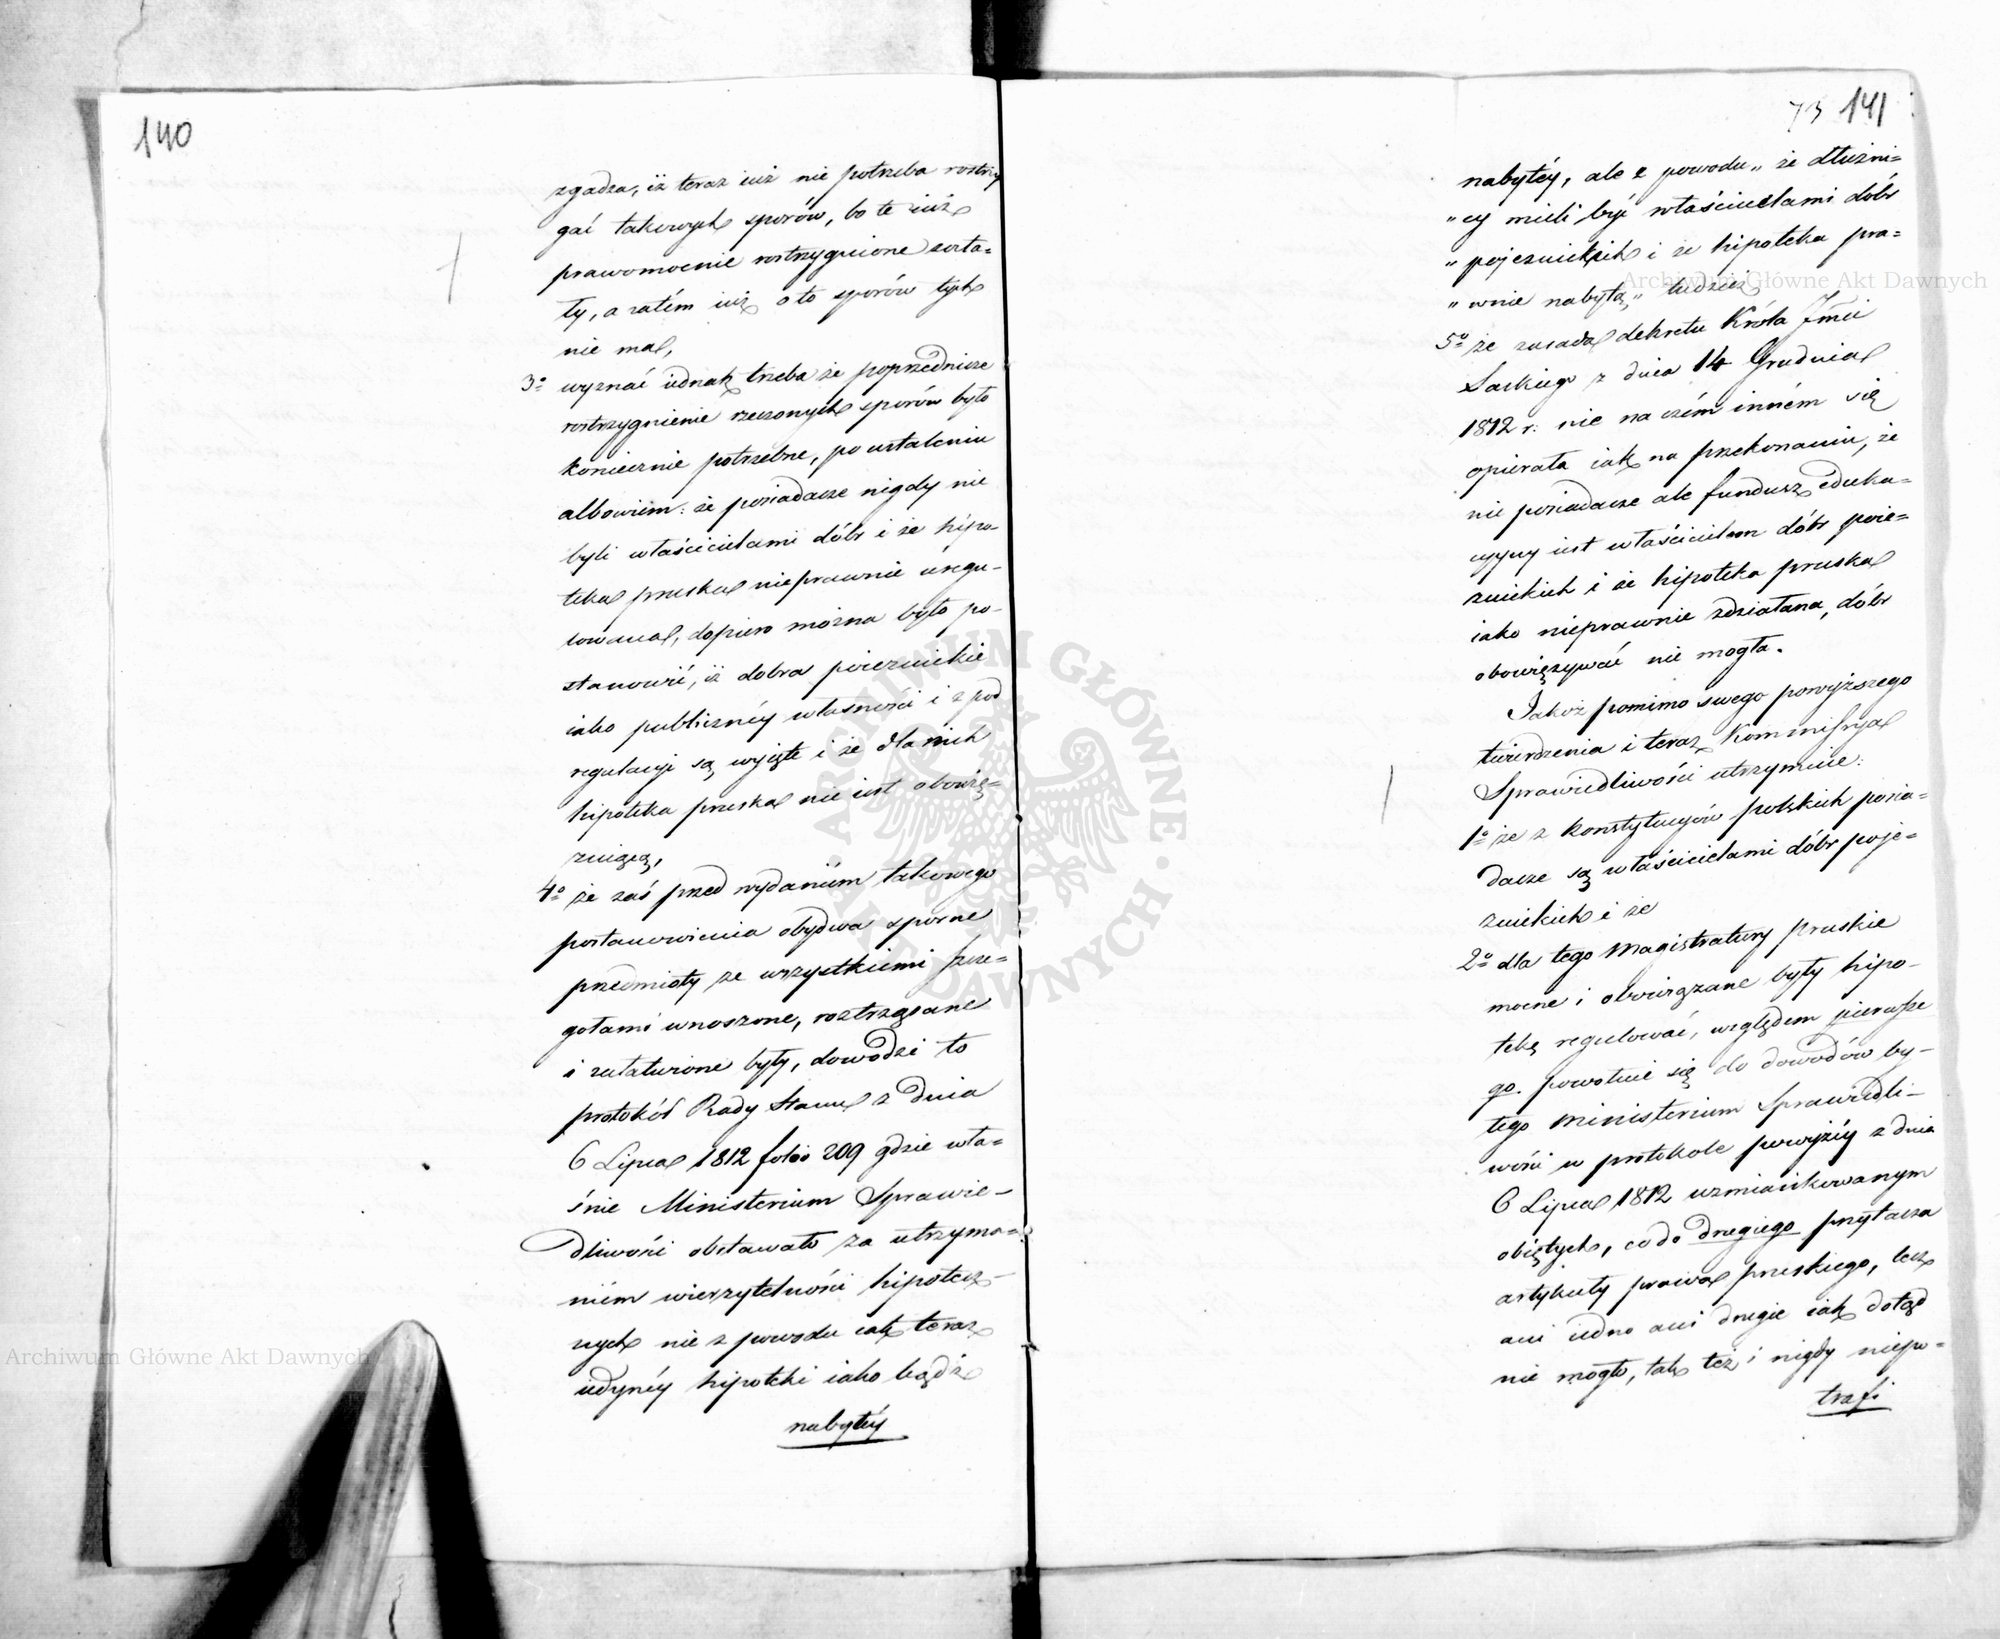 140
zgadza, iż teraz iuż nie potrzeba rostrzy
gać takowych sporów, bo te iuż
prawomocnie rostrzygnione zosta=
ły, a zatém iuż o to sporów tych
nie ma,
3º wyznać iednak trzeba że poprzednicze
rostrzygnienie rzeczonych sporów było
koniecznie potrzebne, po ustaleniu
albowiem: że posiadacze nigdy nie
byli właścicielami dóbr i że hipo-
teka pruska nieprawnie uregu-
lowana, dopiero można było po-
stanowić, iż dobra poiezuickie
iako publicznéy własności i z pod
regulacyi są wyięte i że dla nich
hipoteka pruska nie iest obowię=
zuiącą,
4º że zaś przed wydaniem takowego
postanowienia obydwa sporne
przedmioty ze wszystkiemi szcze=
gołami wnoszone, roztrząsane
i załatwione były, dowodzi to
protokół Rady Stanu z dnia
6 Lipca 1812 folio 209 gdzie wła=
śnie Ministerium Sprawie-
dliwości obstawało za utrzyma=
niém wierzytelności hipotecz-
nych nie z powodu iak teraz
iedynéy hipoteki iako bądź
nabytéy
73 141
nabytéy, ale z powodu „ że dłużni=
„ cy mieli być właścicielami dóbr
„ pojezuickich i że hipoteka pra=
„ wnie nabytą „ tudzież
5º że zasada dekretu Króla Jmci
Saskiego z dnia 14 Grudnia
1812 r: nie na czém inném się
opierała iak na przekonaniu, że
nie posiadacze ale fundusz eduka=
cyyny iest właścicielem dóbr poie=
zuickich i że hipoteka pruska
iako nieprawnie zdziałana, dóbr
obowięzywać nie mogła.
Jakoż pomimo swego powyższego
twierdzenia i teraz Kommissya
Sprawiedliwości utrzymuie:
1º że z konstytucyów polskich posia=
dacze są właścicielami dóbr poje=
zuickich i że
2º dla tego Magistratury pruskie
mocne i obowiązane były hipo-
tekę regulować, względem pierwsze
go. powołuie się do dowodów by-
tego Ministerium Sprawiedli-
wości w protokole powyżéy z dnia
6 Lipca 1812 wzmiankowanym
obiętych, co do drugiego przytacza
artykuły prawa pruskiego, lecz
ani iedno ani drugie iak dotąd
nie mogło, tak też i nigdy niepo=
trafi
Archiwum Główne Akt Dawnych
Archiwum Główne Akt Dawnych
ARCHIWUM GŁÓWNE AKT DAWNYCH